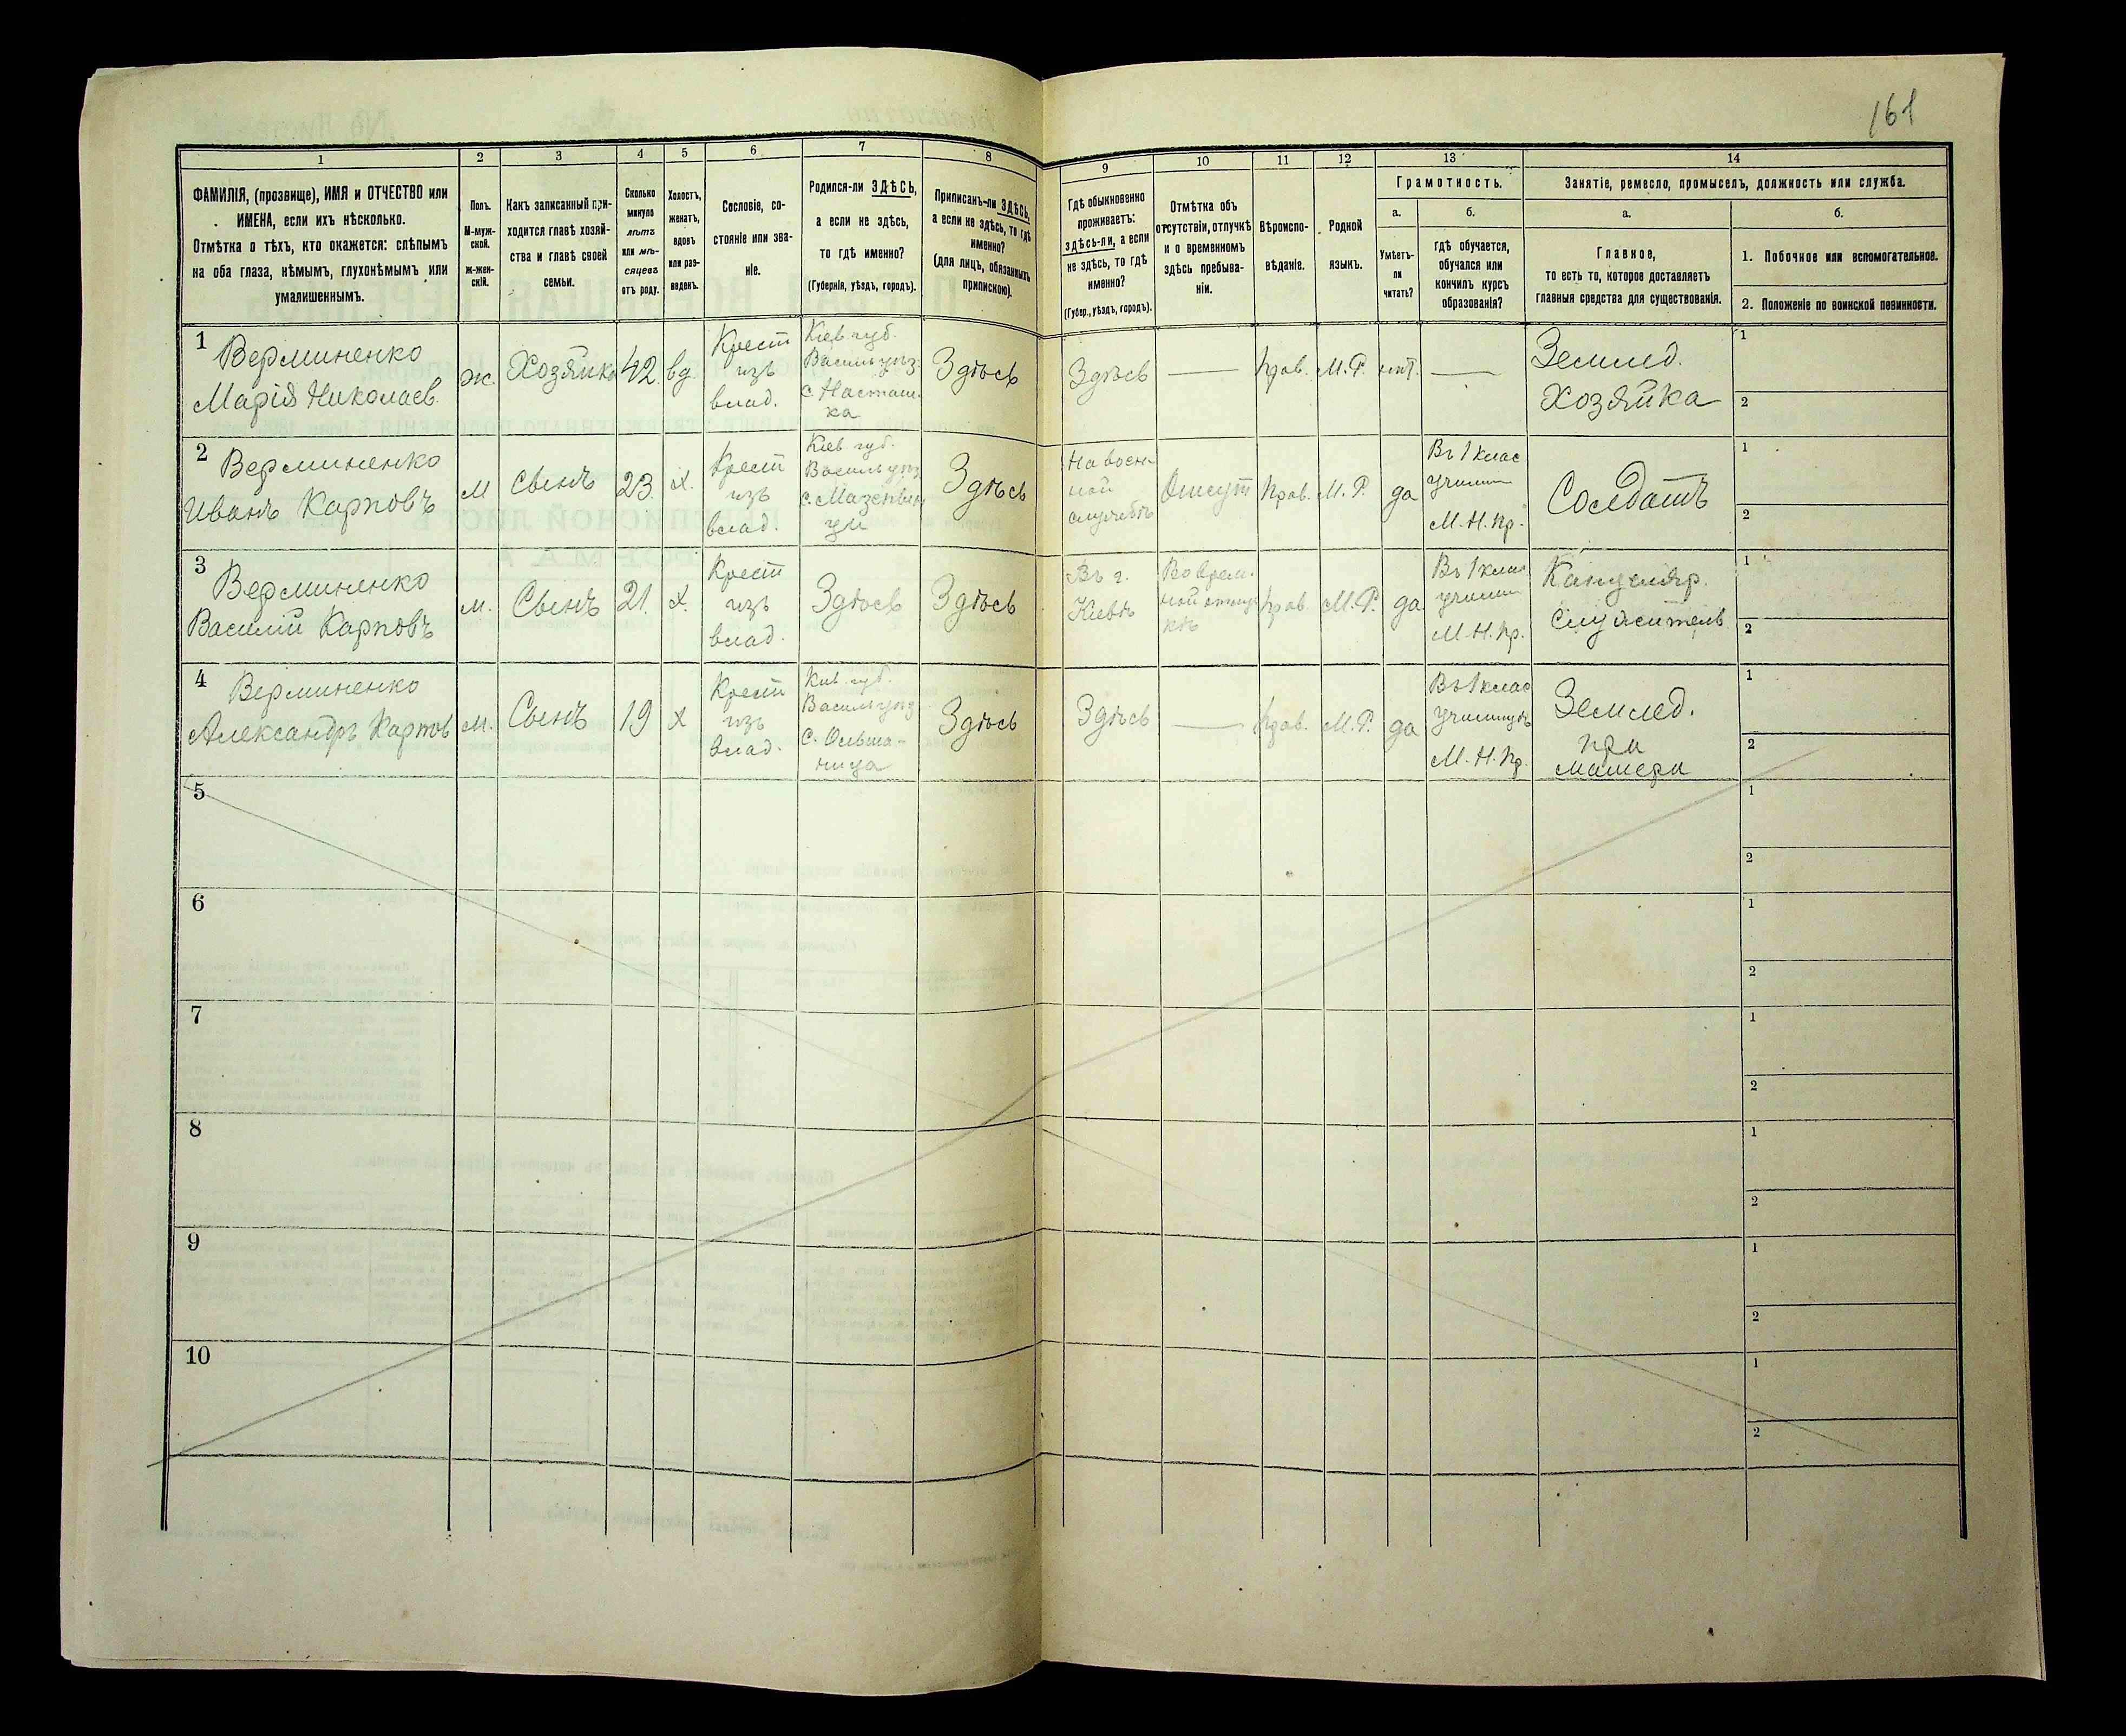 161
1
2
3
4
5
6
7
8
9
10
11
12
13
14
ФАМИЛІЯ, (прозвище), ИМЯ и ОТЧЕСТВО или
ИМЕНА, если ихъ нѣсколько.
Отмѣтка о тѣхъ, кто окажется: слѣпымъ
на оба глаза, нѣмымъ, глухонѣмымъ или
умалишеннымъ.
Полъ.
М-муж-
ской.
ж-жен-
скій.
Какъ записанный при-
ходится главѣ хозяй-
ства и главѣ своей
семьи.
Сколько
минуло
лѣтъ
или мѣ-
сяцевъ
отъ роду.
Холостъ,
женатъ,
вдовъ
или раз-
веденъ.
Сословіе, со-
стояніе или зва-
ніе.
Родился-ли ЗДѢСЬ,
а если не здѣсь,
то гдѣ именно?
(Губернія, уѣздъ, городъ).
Приписанъ-ли ЗДѢСЬ,
а если не здѣсь, то гдѣ
именно?
(для лицъ, обязанныхъ
припискою).
Гдѣ обыкновенно
проживаетъ:
здѣсь-ли, а если
не здѣсь, то гдѣ
именно?
(Губер., уѣздъ, городъ).
Отмѣтка объ
отсутствіи, отлучкѣ
и о временномъ
здѣсь пребыва-
ніи.
Вѣроиспо-
вѣданіе.
Родной
языкъ.
Грамотность.
а.
Умѣетъ-
ли
читать?
б.
гдѣ обучается,
обучался или
кончилъ курсъ
образованія?
Занятіе, ремесло, промыселъ, должность или служба.
а.
Главное,
то есть то, которое доставляетъ
главныя средства для существованія.
б.
1. Побочное или вспомогательное.
2. Положеніе по воинской повинности.
1
Верминенко
Марія Николаев.
ж.
Хозяйка
42
вд
Крест
изъ
влад.
Кіев. губ.
Васильк уѣз.
с. Насташ-
ка
Здѣсь
Здѣсь
—
Прав.
М.Р.
нѣт.
—
Землед.
Хозяйка
1
2
2
Верминенко
Иванъ Карповъ
М
Сынъ
23.
х.
Крест
изъ
влад.
Кіев. губ.
Васильк уѣз
с.
Здѣсь
На воен-
ной
службѣ
Отсут
Прав.
М.Р.
да
Въ 1 клас
училищ
М.Н.Пр.
Солдатъ
1
2
3
Верминенко
Василій Карповъ
м.
Сынъ
21.
х.
Крест
изъ
влад.
Здѣсь
Здѣсь
Въ г.
Кіевѣ
Во врем.
ной отлуч
кѣ
Прав
М.Р.
да
Въ 1 клас
училищ
М.Н.Пр.
Канцеляр.
Служитель
1
2
4
Верминенко
Александръ Карпов
м.
Сынъ
19
х
Крест
изъ
влад.
Кіев. губ.
Васильк уѣзд
с. Ольша-
ница
Здѣсь
Здѣсь
—
Прав.
М.Р.
да
Въ 1 клас
училищѣ
М.Н.Пр.
Землед.
при
матери
1
2
5
1
2
6
1
2
7
1
2
8
1
2
9
1
2
10
1
2